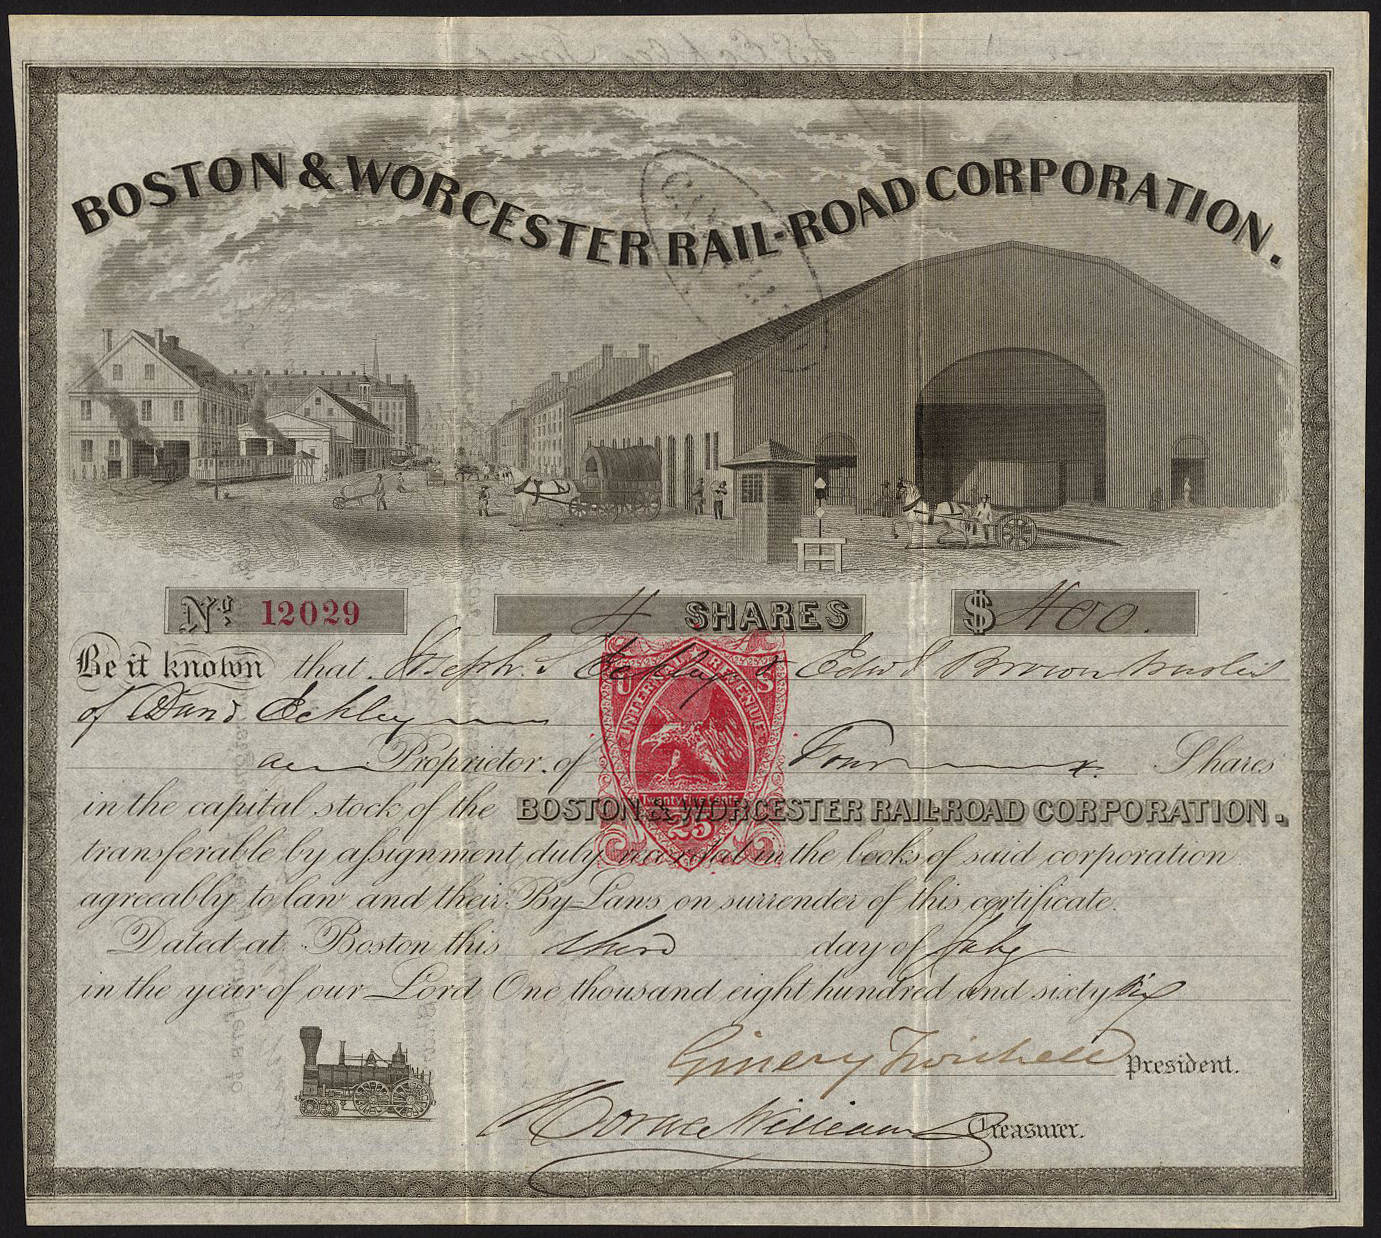 BOSTON & WORCESTER RAIL-ROAD CORPORATION.
No. 12029
4 SHARES
$ 400.
Be it known that Joseph S Eckley & Edwd Brown trustees
of David Eckley
are Proprietor of Four Shares
U S
INTERNAL REVENUE
25
in the capital stock of the BOSTON & WORCESTER RAIL-ROAD CORPORATION.
transferable by assignment duly recorded in the books of said corporation
agreeably to law and their By-Laws, on surrender of this certificate.
Dated at Boston this third day of July
in the year of our Lord One thousand eight hundred and sixty six
Ginery Twichell President.
Horace Williams Treasurer.